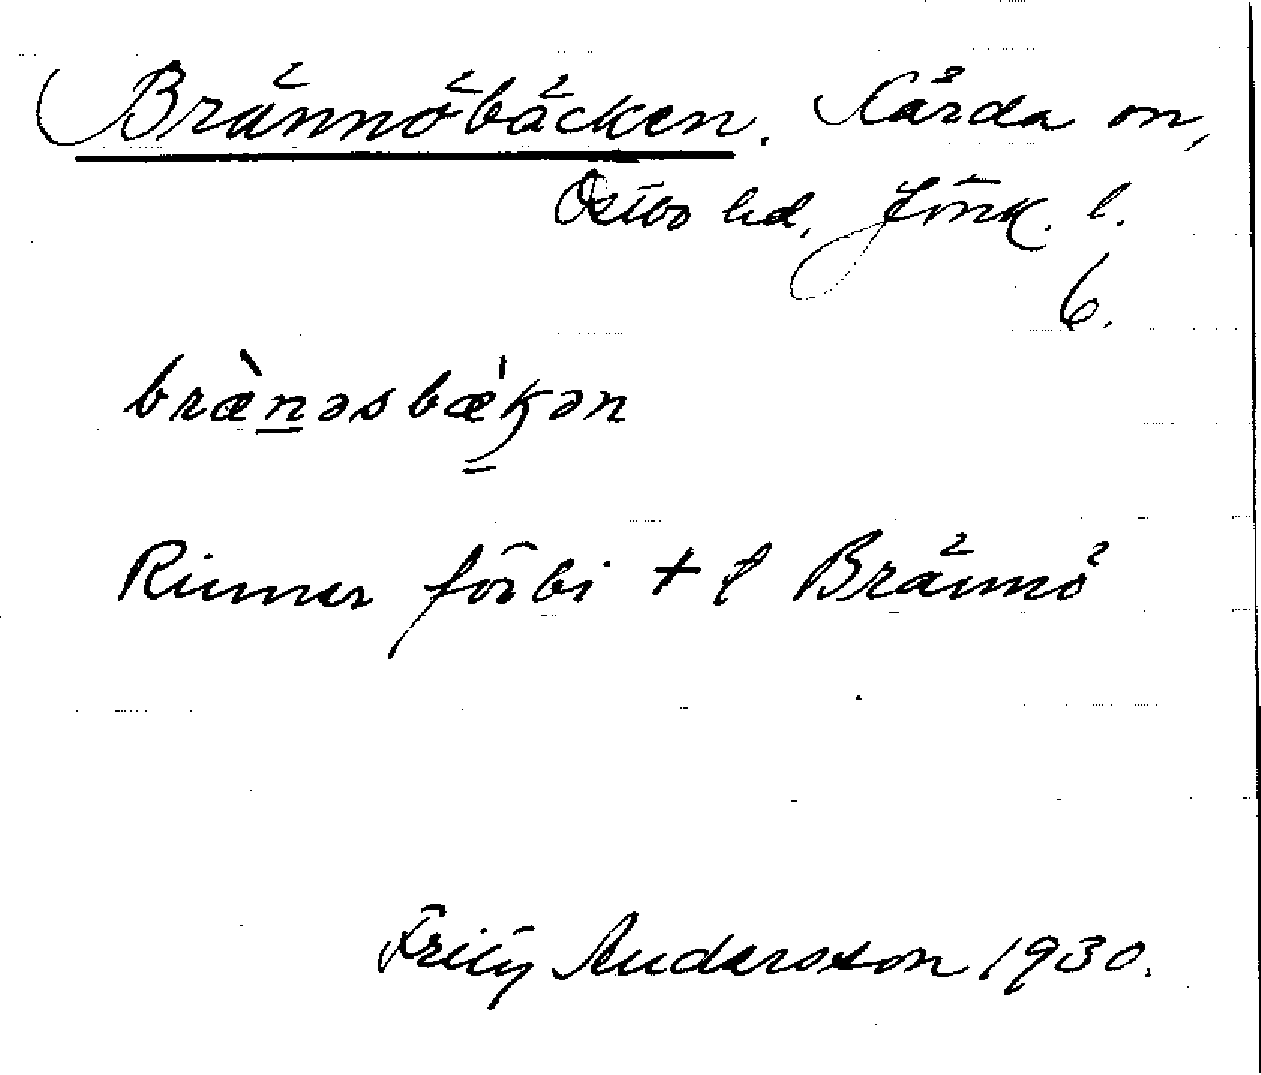 Brännöbäcken. Kärda sn,
Östbo hd, Jönk. l.
6.
bræ̀nəsbækən
Rinner förbi + t Brännö
Fritz Andersson 1930.